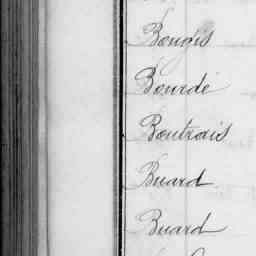 Bougis
Bourdé
Boutrois
Buard
Buard